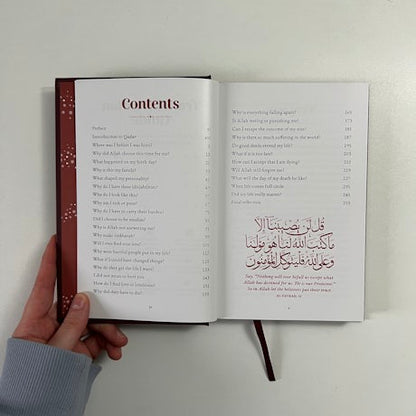 Contents
Preface
Introduction to Qadar
Where was I before I was born?
Why did Allah choose this time for me?
What happened on my birth day?
Why is this my family?
What shaped my personality?
Why do I have these
Why do I look like this?
Why am I rich or poor?
Why do I have to carry their burden?
Did I choose to be muslim?
Why is Allah not answering me?
Why make istikharah?
Will I ever find true love?
Why were harmful people put in my life?
What if I could have changed things?
Why do they get the life I want?
I did not mean to hurt you
How do I find love or loneliness?
Why did they have to die?
Why is everything falling apart?
Is Allah testing or punishing me?
Can I escape the outcome of my sins?
Why is there so much suffering in the world?
Do good deeds extend my life?
What if it is too late?
How can I accept that I am dying?
Will Allah forgive me?
What will the day of my death be like?
When life comes full circle
Did my life really matter?
قُل لَّن يُصِيبَنَا إِلَّا
مَا كَتَبَ اللَّهُ لَنَا هُوَ مَوْلَانَا
وَعَلَى اللَّهِ فَلْيَتَوَكَّلِ الْمُؤْمِنُونَ
Say, "Nothing will ever befall us except what
Allah has destined for us. He is our Protector."
So in Allah let the believers put their trust.